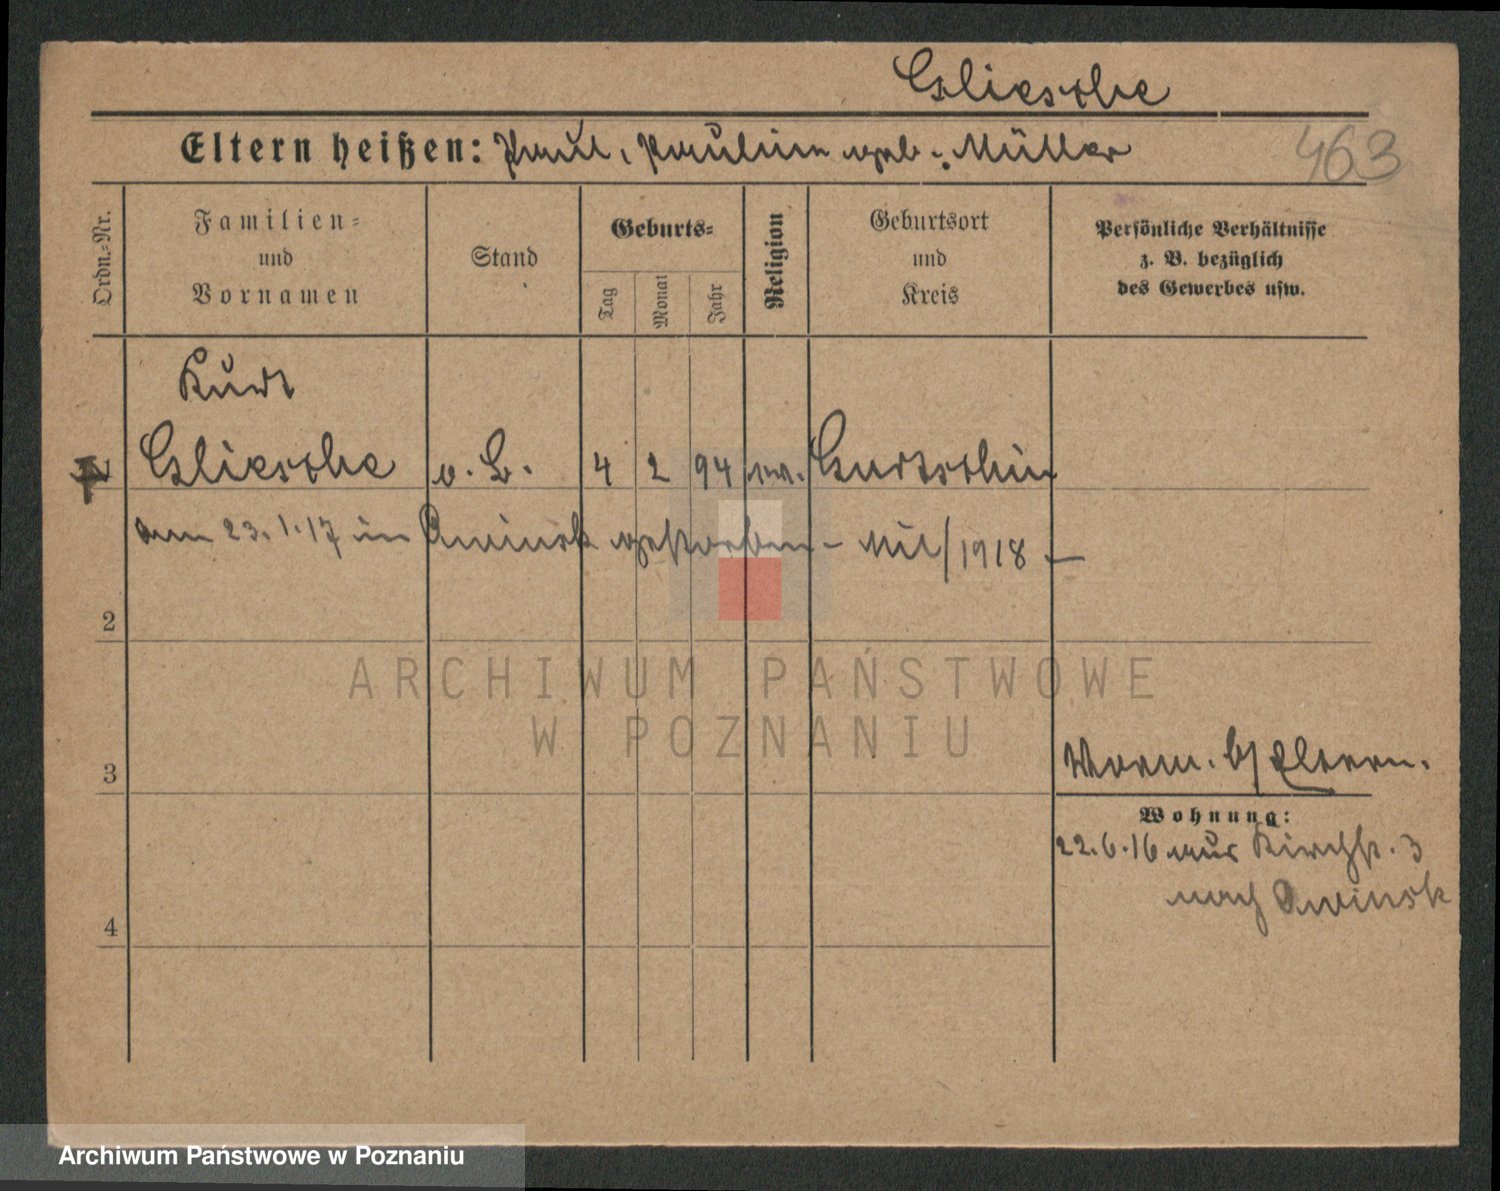 Gliesche
Eltern heißen: Paul, Pauline geb. Müller
463
Ordn.-Nr.
Familien-
und
Vornamen
Stand
Geburts-
Tag
Monat
Jahr
Religion
Geburtsort
und
Kreis
Persönliche Verhältnisse
z. B. bezüglich
des Gewerbes usw.
Kurt
Gliesche o. G. 4 2 94 ev. Gurtschin
am 23.1.17 in Owinsk gestorben - /1918 -
2
3
b/ Eltern.
Wohnung:
22.6.16 aus Kirchst. 3
nach Owinsk
4
ARCHIWUM PAŃSTWOWE
W POZNANIU
Archiwum Państwowe w Poznaniu